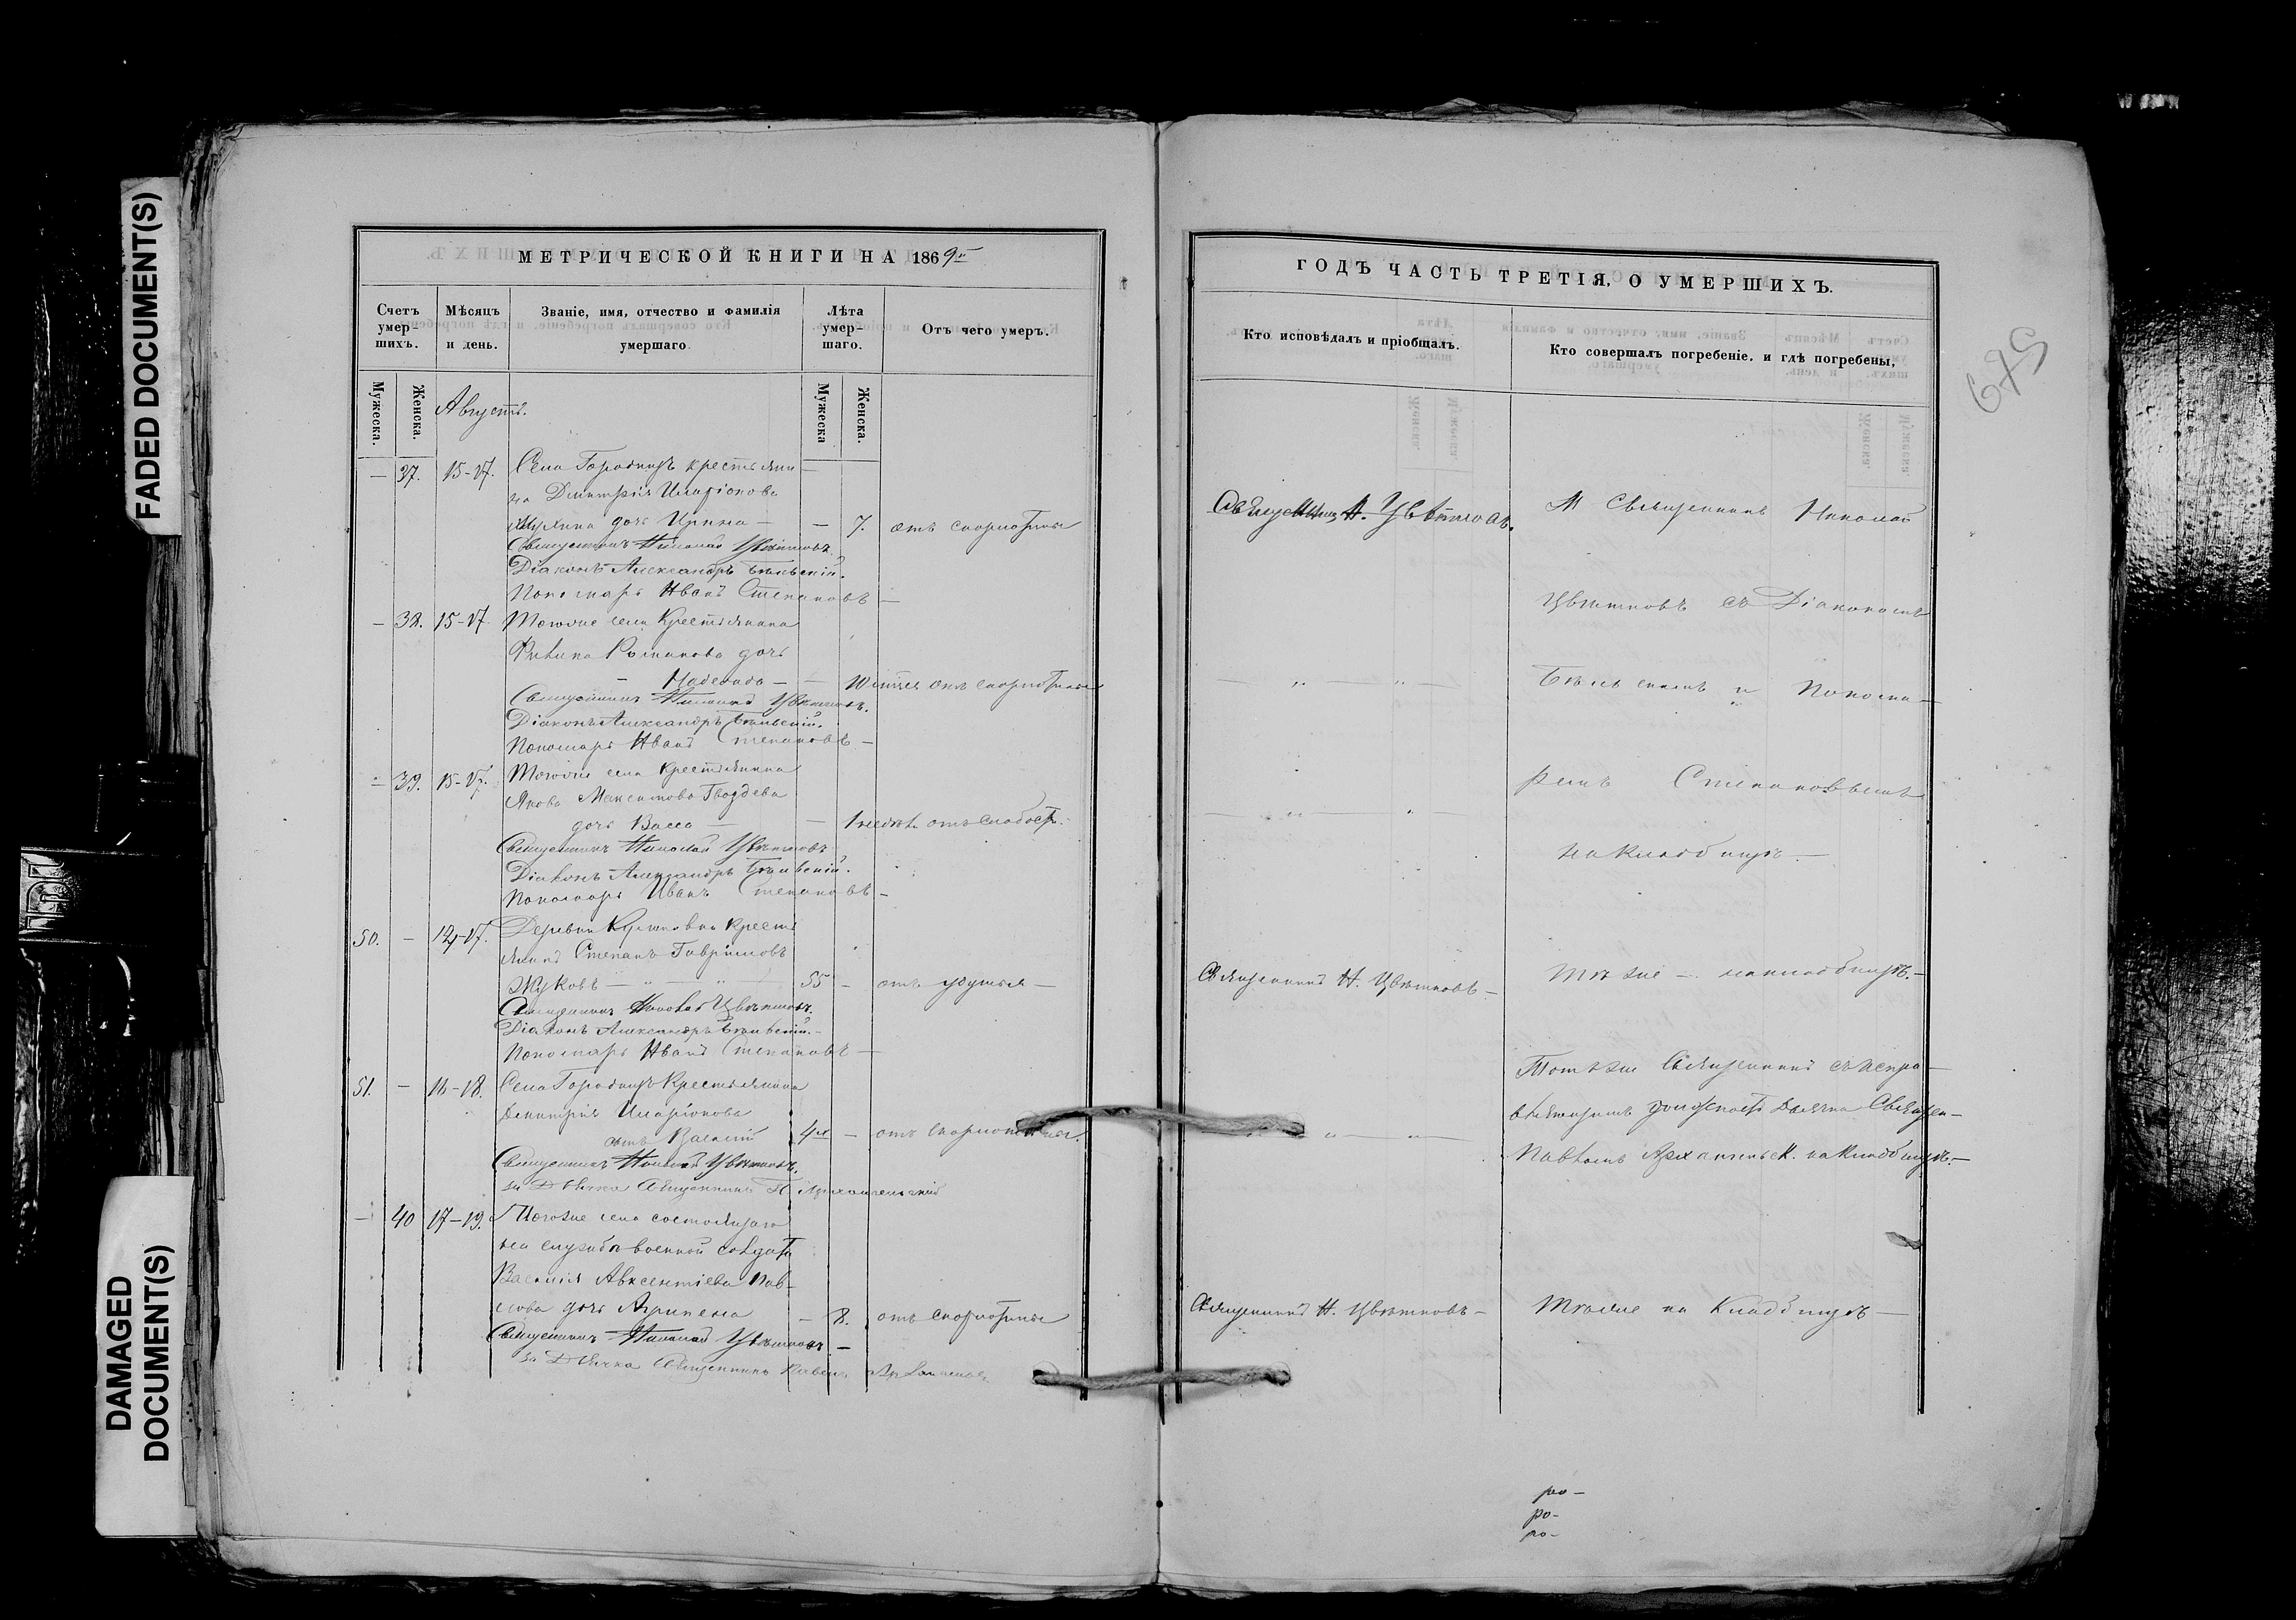 FADED DOCUMENT(S)
DAMAGED
DOCUMENT(S)
МЕТРИЧЕСКОЙ КНИГИ НА 1869
Счетъ умер-шихъ.
Мѣсяцъ и день.
Званіе, имя, отчество и фамилія умершаго
Лѣта умер-шаго.
Отъ чего умеръ.
Мужеска.
Женска.
Августъ.
Мужеска
Женска.
— 37. 15-17. Села Городищъ крестьяни
на Дмитрія Иларіонова
дочь Ирина — — 7. отъ скорлотины
Священникъ Николай Цвѣтковъ.
Діаконъ Александръ Бѣльскій.
Пономарь Иванъ Степановъ —
— 38. 15-17 Тогоже села Крестьянина
Романова дочь
Надежда — отъ скорлотины
Священникъ Николай Цвѣтковъ.
Діаконъ Александръ Бѣльскій.
Пономарь Иванъ Степановъ —
— 39. 15-17. Тогоже села крестьянина
Якова Максимова Гвоздева
дочь Васса — — 1 недѣл. отъ слабост.
Священникъ Николай Цвѣтковъ
Діаконъ Александръ Бѣльскій.
Пономарь Иванъ Степановъ —
50. — Деревни крестъ
янинъ Степанъ Гавриловъ
Жуковъ — 55 — отъ удушья —
Священникъ Николай Цвѣтковъ.
Діаконъ Александръ Бѣльскій.
Пономарь Иванъ Степановъ —
51. — 16-18. Села Городищъ Крестьянина
Дмитрія Иларіонова
сынъ Василій 4 — отъ скорлотины.
Священникъ Николай Цвѣтковъ.
за Дьячка Священникъ П. Архангельскій
— 40 17-19. Тогоже села состоящаго
на службѣ военной солдата
Василія Авксентіева Пав-
лова дочь Агрипена — 8. отъ скорлотины
Священникъ Николай Цвѣтковъ —
за Дьячка Священникъ Павелъ
ГОДЪ ЧАСТЬ ТРЕТІЯ, О УМЕРШИХЪ.
Кто исповѣдалъ и пріобщалъ.
Кто совершалъ погребеніе. и гдѣ погребены.
675
Священникъ Н. Цвѣтковъ.
Священникъ Николай
Цвѣтковъ съ Діакономъ
Бѣльскимъ и Понома-
ремъ Степановымъ
на кладбищѣ. —
Священникъ Н. Цвѣтковъ —
Тѣ же — на кладбищѣ. —
Тотъ же Священникъ съ испра-
вляющимъ должность Дьячка Священ-
Павломъ Архангельск. на кладбищѣ. —
Священникъ Н. Цвѣтковъ —
Тѣ же на Кладбищѣ —
ро-
ро-